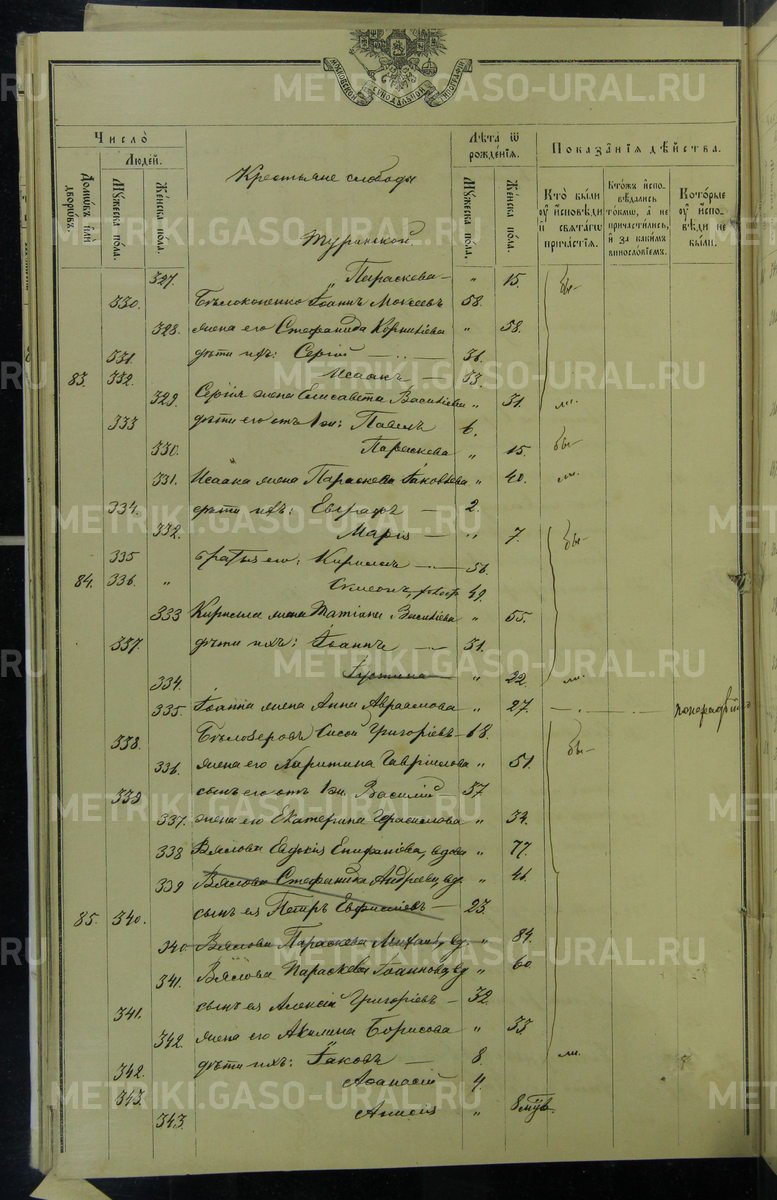 МОСКОВСКОЙ СѴНОДАЛЬНОЙ ТИПОГРАФІИ
Число̀ Лѣта ѿ рожденїѧ. Показанїѧ дѣйства.
Людей.
Домѡвъ или дворѡвъ. Мꙋжеска пола. Женска пола. Мꙋжеска пола. Женска пола. Кто были ꙋ исповѣди и свѧтагѡ причастїѧ. Ктожъ исповѣдались токмѡ, а не причастились, и за какимъ винословїемъ. Которые ꙋ исповѣди не были.
Крестьяне слободы
Туринской
327. Параскева — " 15. бы-
330. Бѣлокопенко Іоаннъ Моисеевъ 58.
328. жена его Стефанида Корниліева " 58.
331. дѣти ихъ: Сергій — 36.
83. 332. Исаакъ — 33.
329. Сергія жена Елисавета Василіева " 31. мл.
333 дѣти его отъ 1 ж: Павелъ 6.
330. Параскева " 15. бы-
331. Исаака жена Параскева Іаковлева " 40. мл.
334. дѣти ихъ: Евграфъ — 2.
332. Марія — " 7. бы-
335 братья его: Кириллъ — 56.
84. 336. " Симеонъ, 49.
333 Кирилла жена Татіана Василіева " 55.
337. дѣти ихъ: Іоаннъ — 31.
334. Іустина " 22. мл.
335. Іоанна жена Анна Авраамова " 27. —
338. Бѣлозеровъ Сисой Григоріевъ 68. бы-
336. жена его Харитина Гавріилова " 51.
339 сынъ его отъ 1 ж. Василій — 37.
337. жена его Екатерина Герасимова " 34.
338 Вялова Евдокія Епифаніева, вдова " 77.
339 Вялова Стефанида Андреева, вд. " 46.
85. 340. сынъ ея Петръ — 23.
340. Вялова Параскева вд. " 84.
341. Вялова Параскева Іоаннова, вд " 60
341. сынъ ея Алексій Григоріевъ — 32.
342. жена его Акилина Борисова " 33
342. дѣти ихъ: Іаковъ — 8. мл.
343. Аѳанасій 4.
343. Анисія " 8 мцв.
METRIKI.GASO-URAL.RU